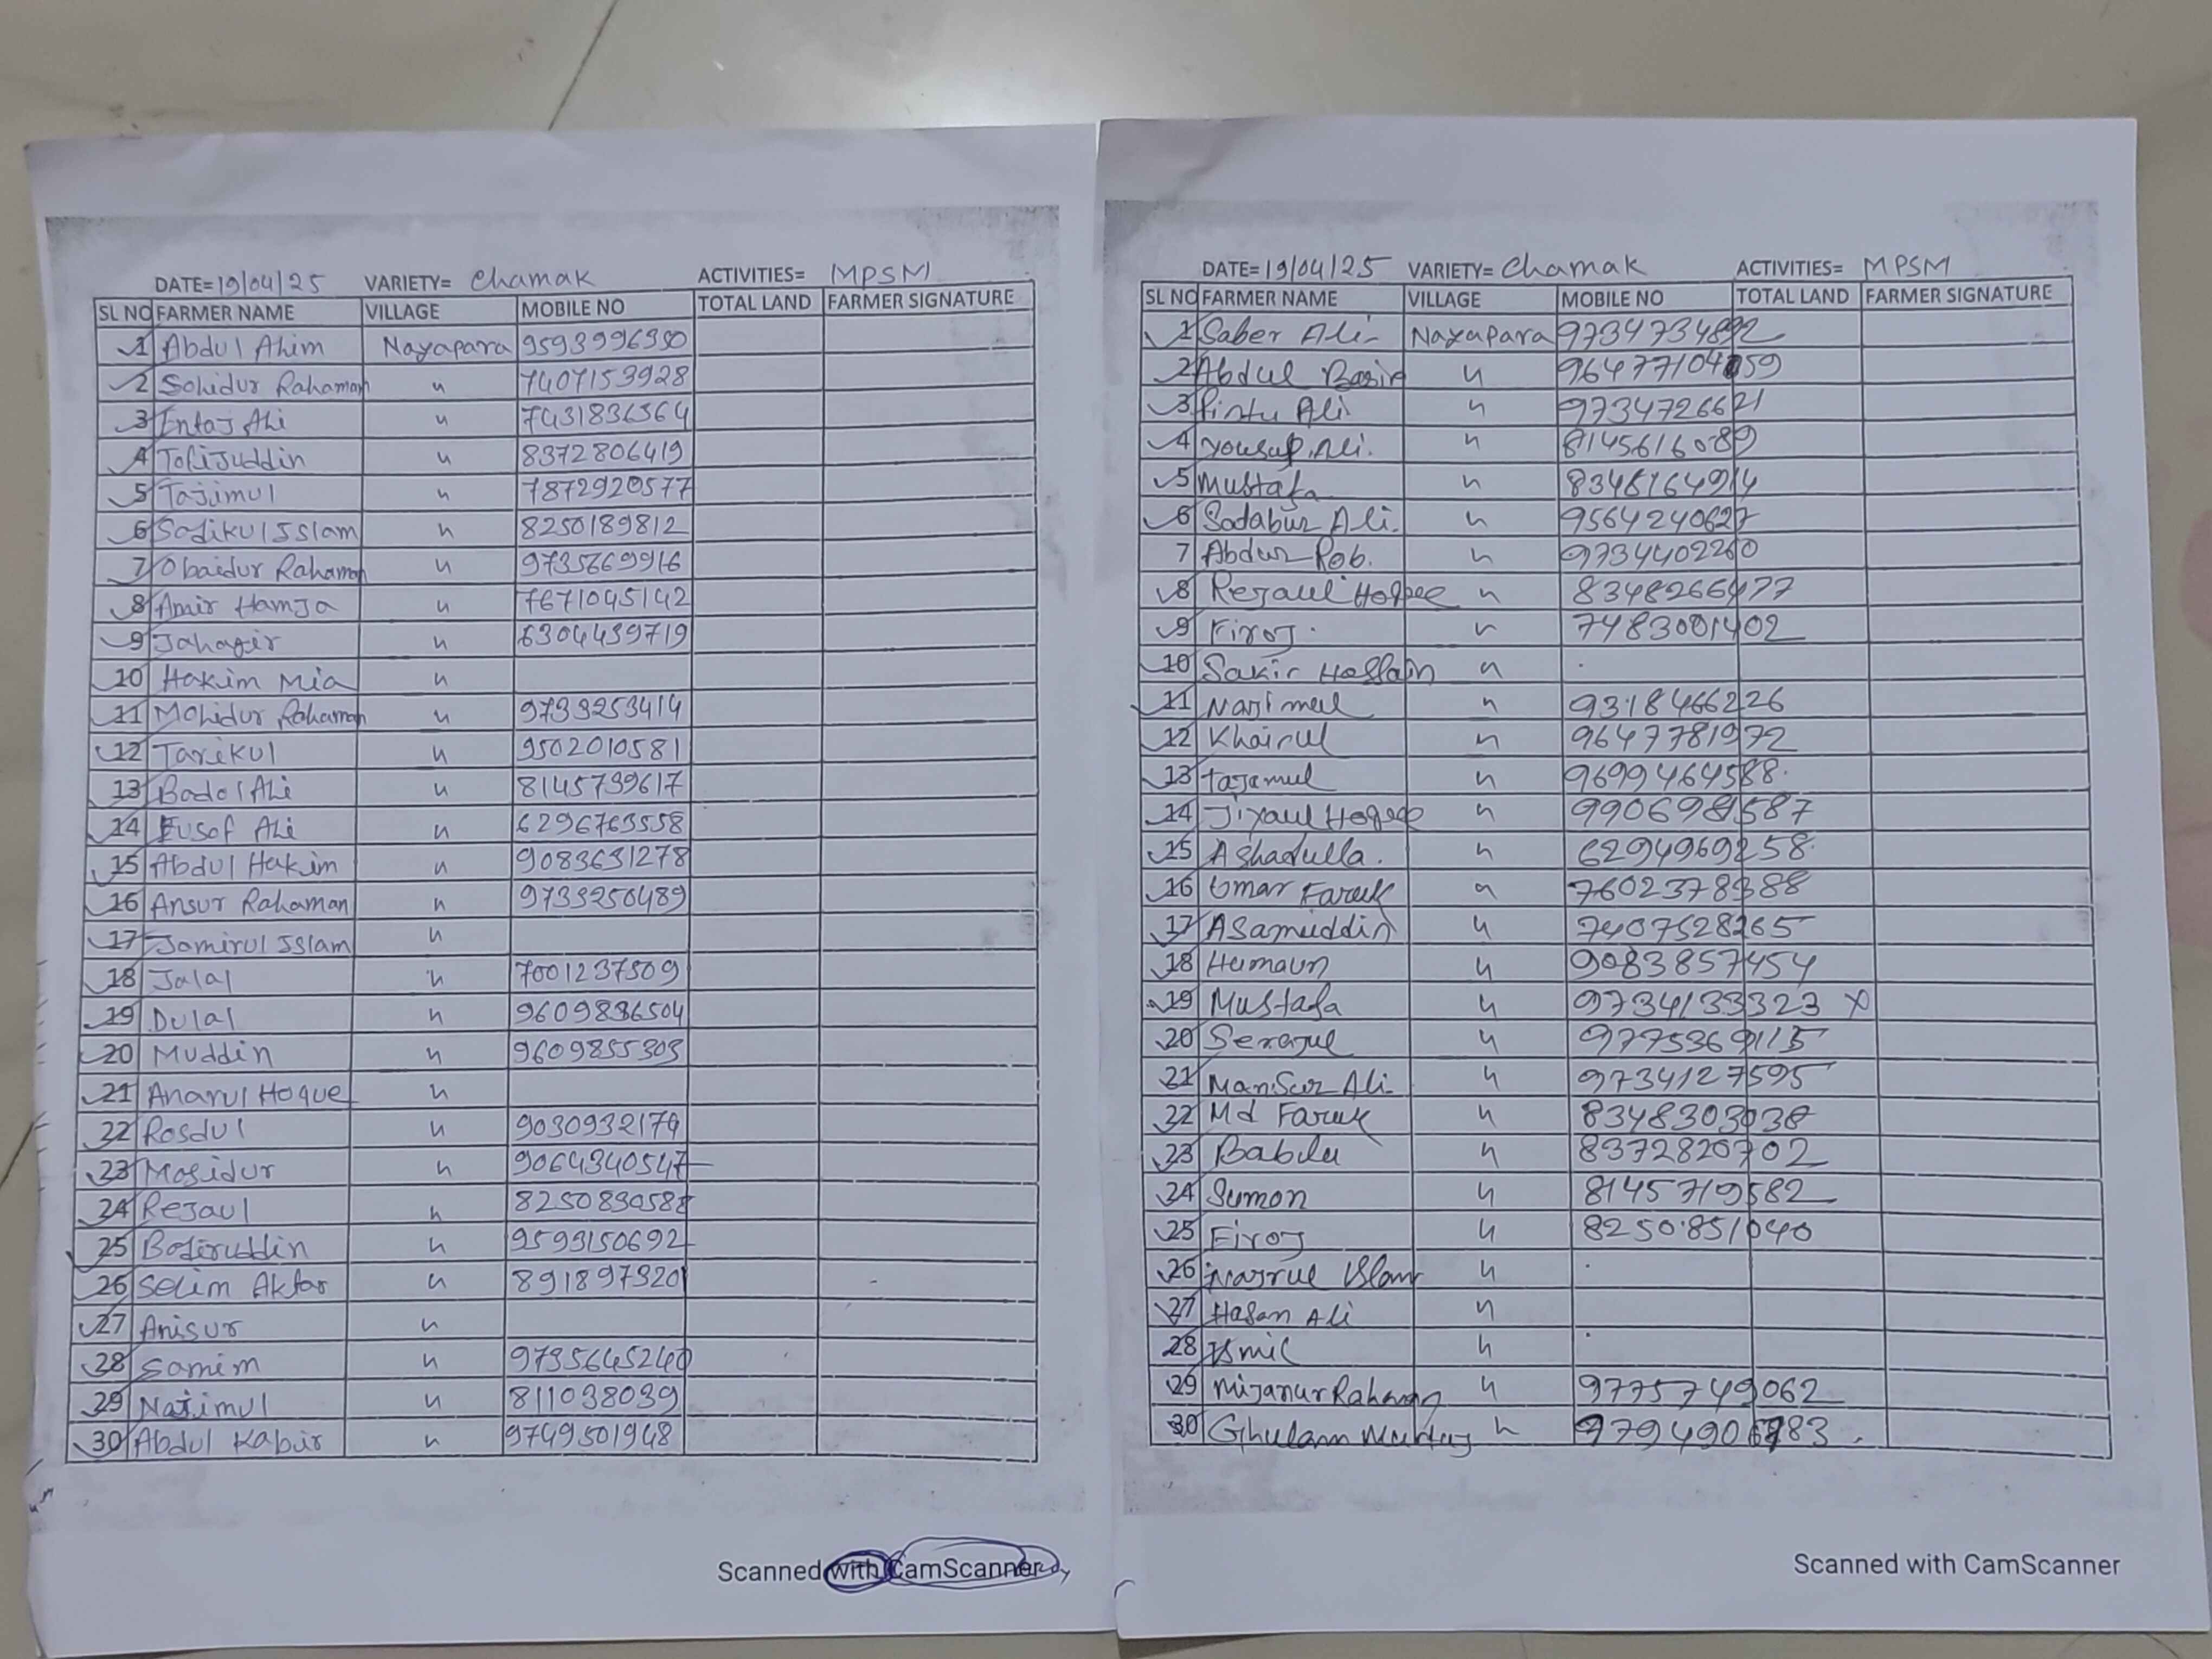 DATE= 19/04/25 VARIETY= Chamak ACTIVITIES= MPSM
SL NO FARMER NAME VILLAGE MOBILE NO TOTAL LAND FARMER SIGNATURE
1 Abdul Ahim Nayapara 9593996390
2 Sohidur Rahaman " 7407153928
3 Entaj Ali " 7431836564
4 Tofijuddin " 8372806419
5 Tajimul " 7872920577
6 Sadikul Islam " 8250189812
7 Obaidur Rahaman " 9735669916
8 Amir Hamja " 7671045142
9 Jahagir " 6304439719
10 Hakim Mia "
11 Mohidur Rahaman " 9733253414
12 Tarikul " 9502010581
13 Badol Ali " 8145739617
14 Eusof Ali " 6296763558
15 Abdul Hakim " 9083631278
16 Ansur Rahaman " 9733250489
17 Jamirul Islam "
18 Jalal " 7001237509
19 Dulal " 9609836504
20 Muddin " 9609855303
21 Anarul Hoque "
22 Rosdul " 9030932179
23 Mosidur " 9064340547
24 Rejaul " 8250830588
25 Bodiruddin " 9593150692
26 Selim Aktar " 891897320
27 Anisur "
28 Samim " 9735645240
29 Najimul " 811038039
30 Abdul Kabir " 9749501948
Scanned with CamScanner
DATE= 19/04/25 VARIETY= Chamak ACTIVITIES= MPSM
SL NO FARMER NAME VILLAGE MOBILE NO TOTAL LAND FARMER SIGNATURE
1 Saber Ali Nayapara 9734734892
2 Abdul Basir "
3 Pintu Ali " 9734726621
4 Yousup Ali. " 8145616089
5 Mustafa " 8348164914
6 Sadabur Ali. " 9564240627
7 Abdur Rob. " 9734402260
8 Rejaul Hoque " 8348266477
9 Firoj. " 7483001402
10 Sakir Hossain "
11 Najimul " 9318466226
12 Khairul " 9647781972
13 tajamul " 9699464588.
14 Jiyaul Hoque " 9906981587
15 Ashadulla. " 6294969258.
16 Omar Faruk " 7602378388
17 Asamuddin " 7407528265
18 Humaun " 9083857454
19 Mustafa " 9734133323 X
20 Serajul " 9775369115
21 Mansur Ali " 9734127595
22 Md Faruk " 8348303038
23 Bablu " 8372820702
24 Sumon " 8145719582
25 Firoj " 8250851040
26 Nasrul Islam "
27 Hasan Ali "
28 Ismil "
29 Mijanur Rahaman " 9775749062
30 Ghulam "
Scanned with CamScanner